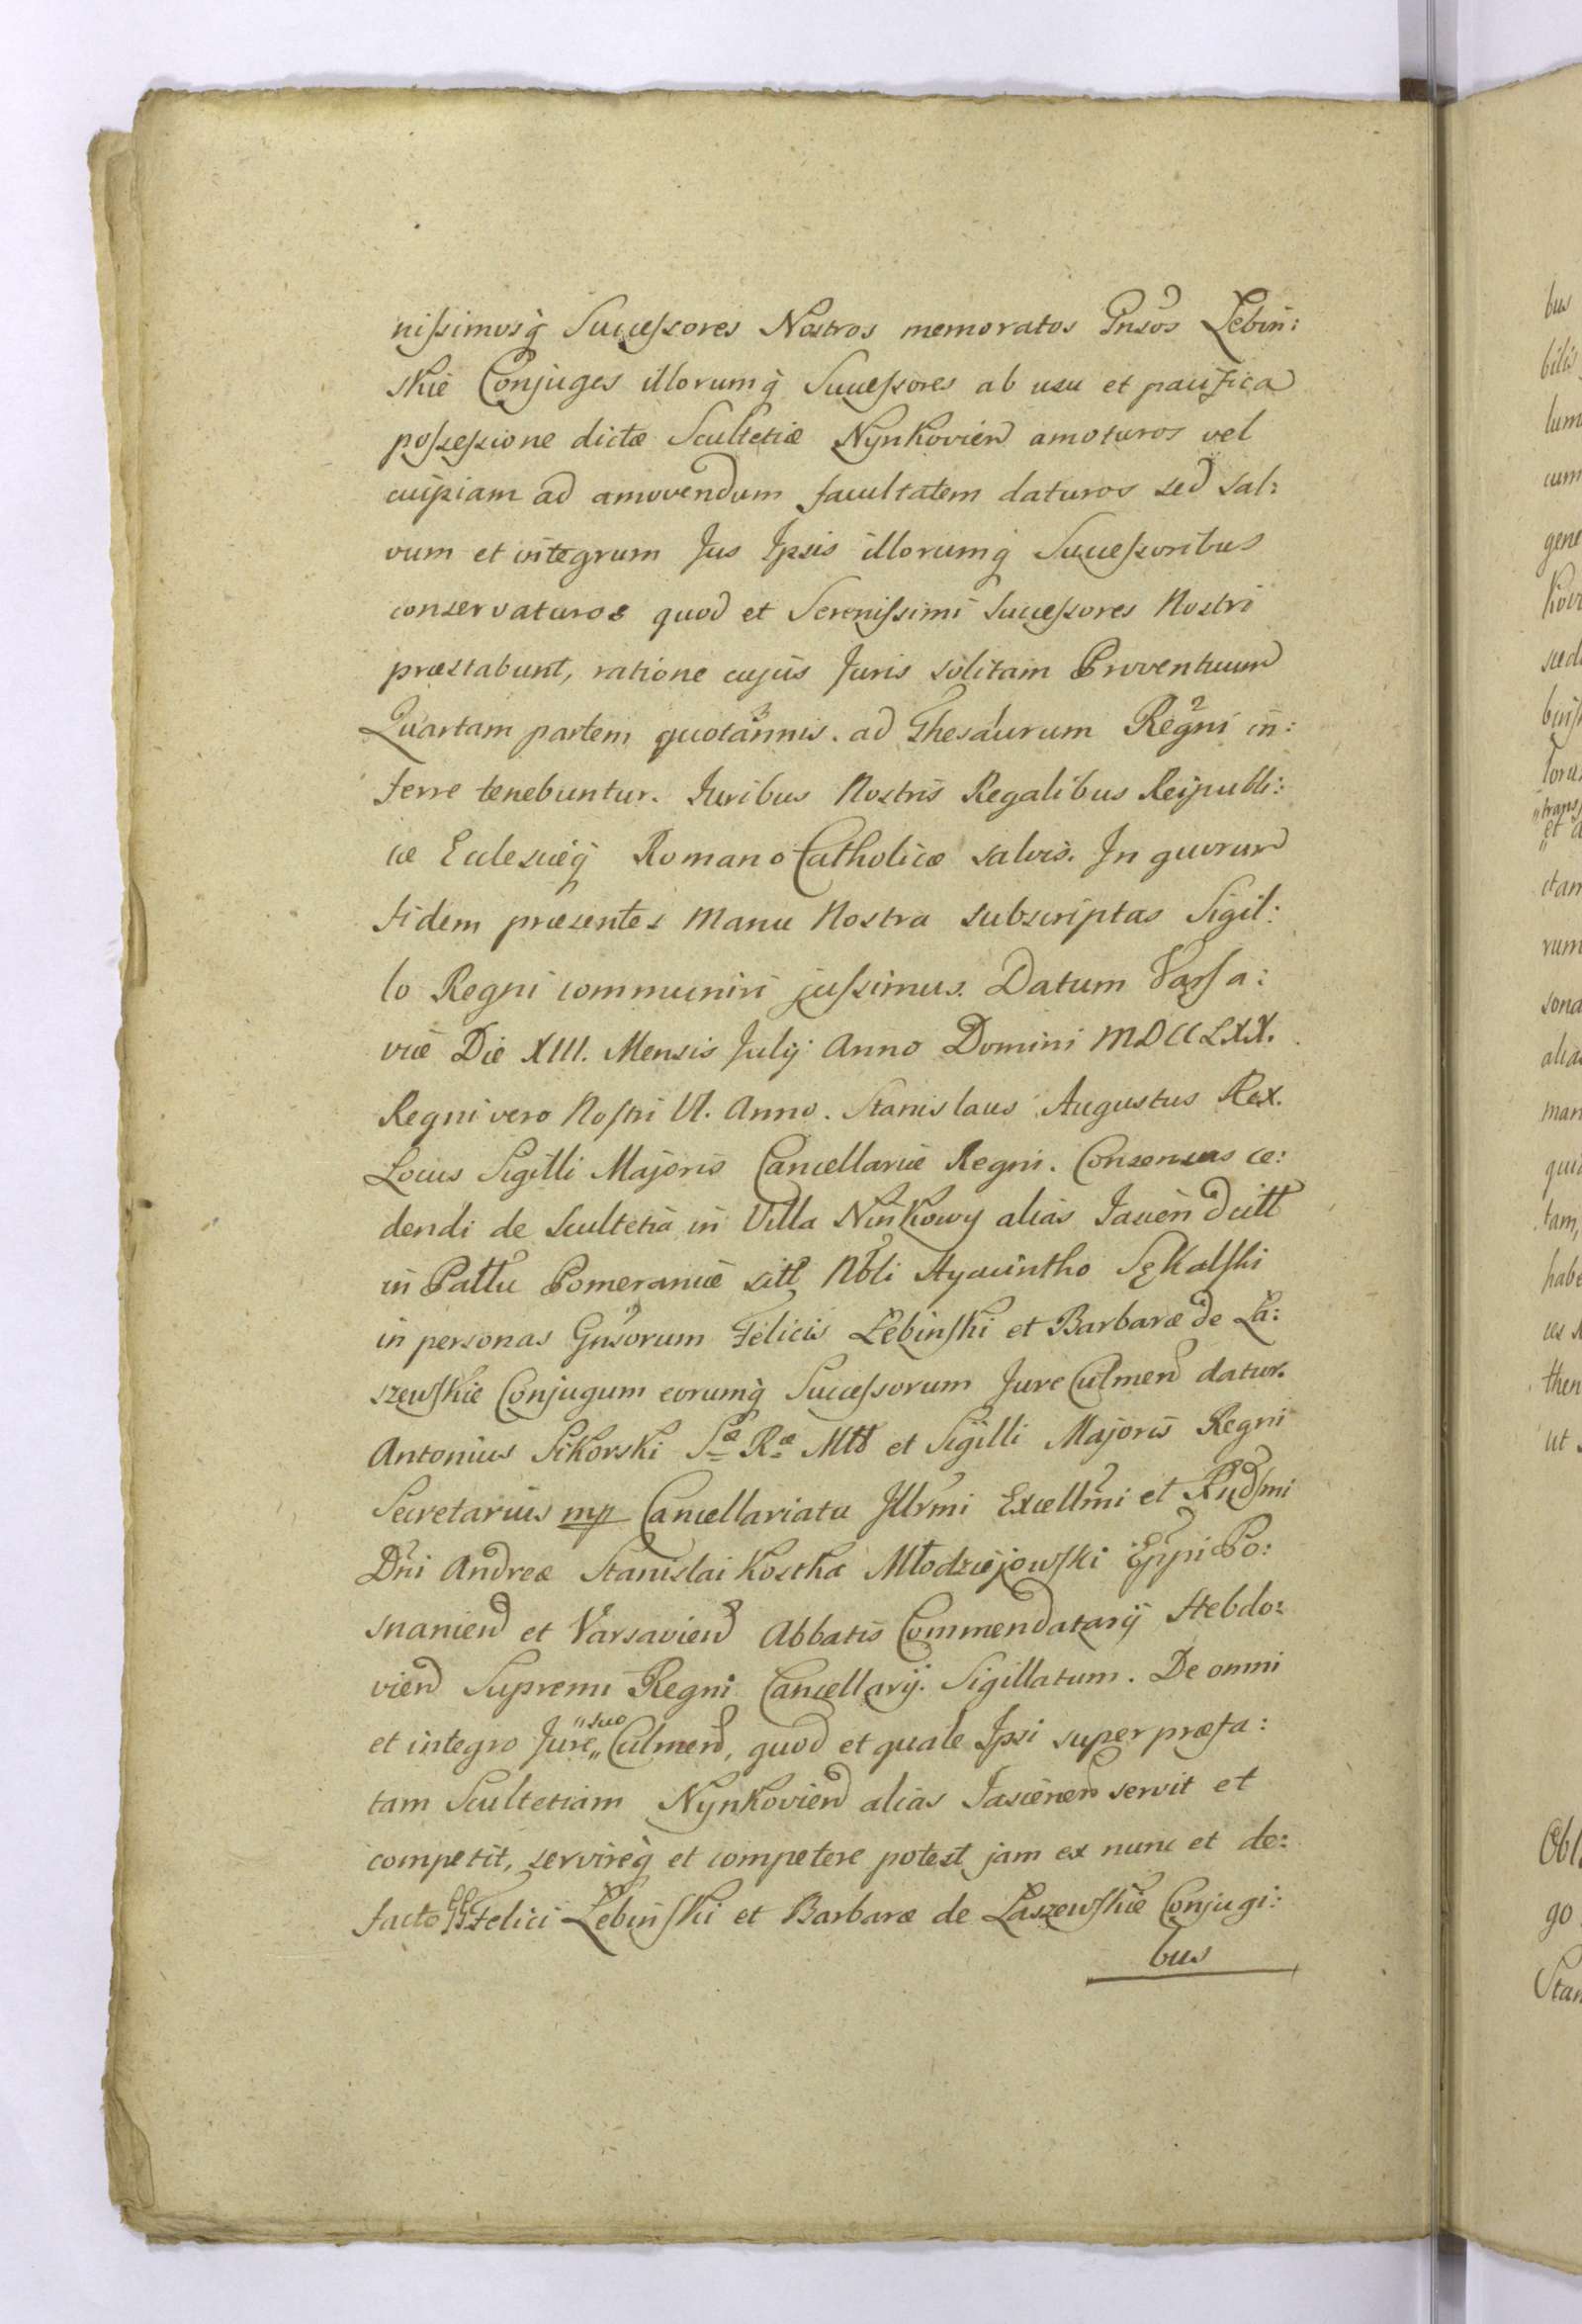 niſsimosq̃ Succeſsores Nostros memoratos Gnsos Łebin:
skie Conjuges illorumq̃ Succeſsores ab usu et pacifica
poſseſsione dictæ Scultetiæ Nynkovien amoturos vel
cuipiam ad amovendum facultatem daturos sed sal:
vum et integrum Jus Ipsis illorumq̃ Succeſsoribus
conservaturos quod et Sereniſsimi Succeſsores Nostri
præstabunt, ratione cujus Juris solitam Proventuum
Quartam partem quotannis. ad Thesaurum Regni in:
ferre tenebuntur. Juribus Nostris Regalibus Reipubli:
cæ Eclesiæq̃ Romano Catholicæ salvis. In quorum
fidem præsentes Manu Nostra subscriptas Sigil:
lo Regni communiri juſsimus. Datum Varſa:
viæ Die XIII. Mensis Julij Anno Domini MDCCLXX.
Regni vero Noſtri VI. Anno. Stanislaus Augustus Rex.
Locus Sigilli Majoris Cancellariæ Regni. Consensus ce:
dendi de Scultetia in Villa Ninkowy alias Jasien dictt
in Pattu Pomeraniæ sitt Nbli Hyacintho Sękalſki
in personas Gnsorum Felicis Łebinſki et Barbaræ de Ła:
szewſkie Conjugum eorumq̃ Succeſsorum Jure Culmen datur.
Antonius Sikorski Sæ Ræ Mtt et Sigilli Majoris Regni
Secretarius mp Cancellariatu Jllrmi Excellmi et Rndſmi
Dni Andreæ Stanislai Kostka Młodziejowſki Eppi Po:
snanien et Varsavien Abbatis Commendatarij Hebdo:
vien Supremi Regni Cancellarij. Sigillatum. De omni
et integro Jure „suo„ Culmen, quod et quale Ipsi super præfa:
tam Scultetiam Nynkovien alias Jasienen servit et
competit, servireq̃ et competere potest jam ex nunc et de:
facto GG Felici Łebinſki et Barbaræ de Łaszewſkie Conjugi:
bus